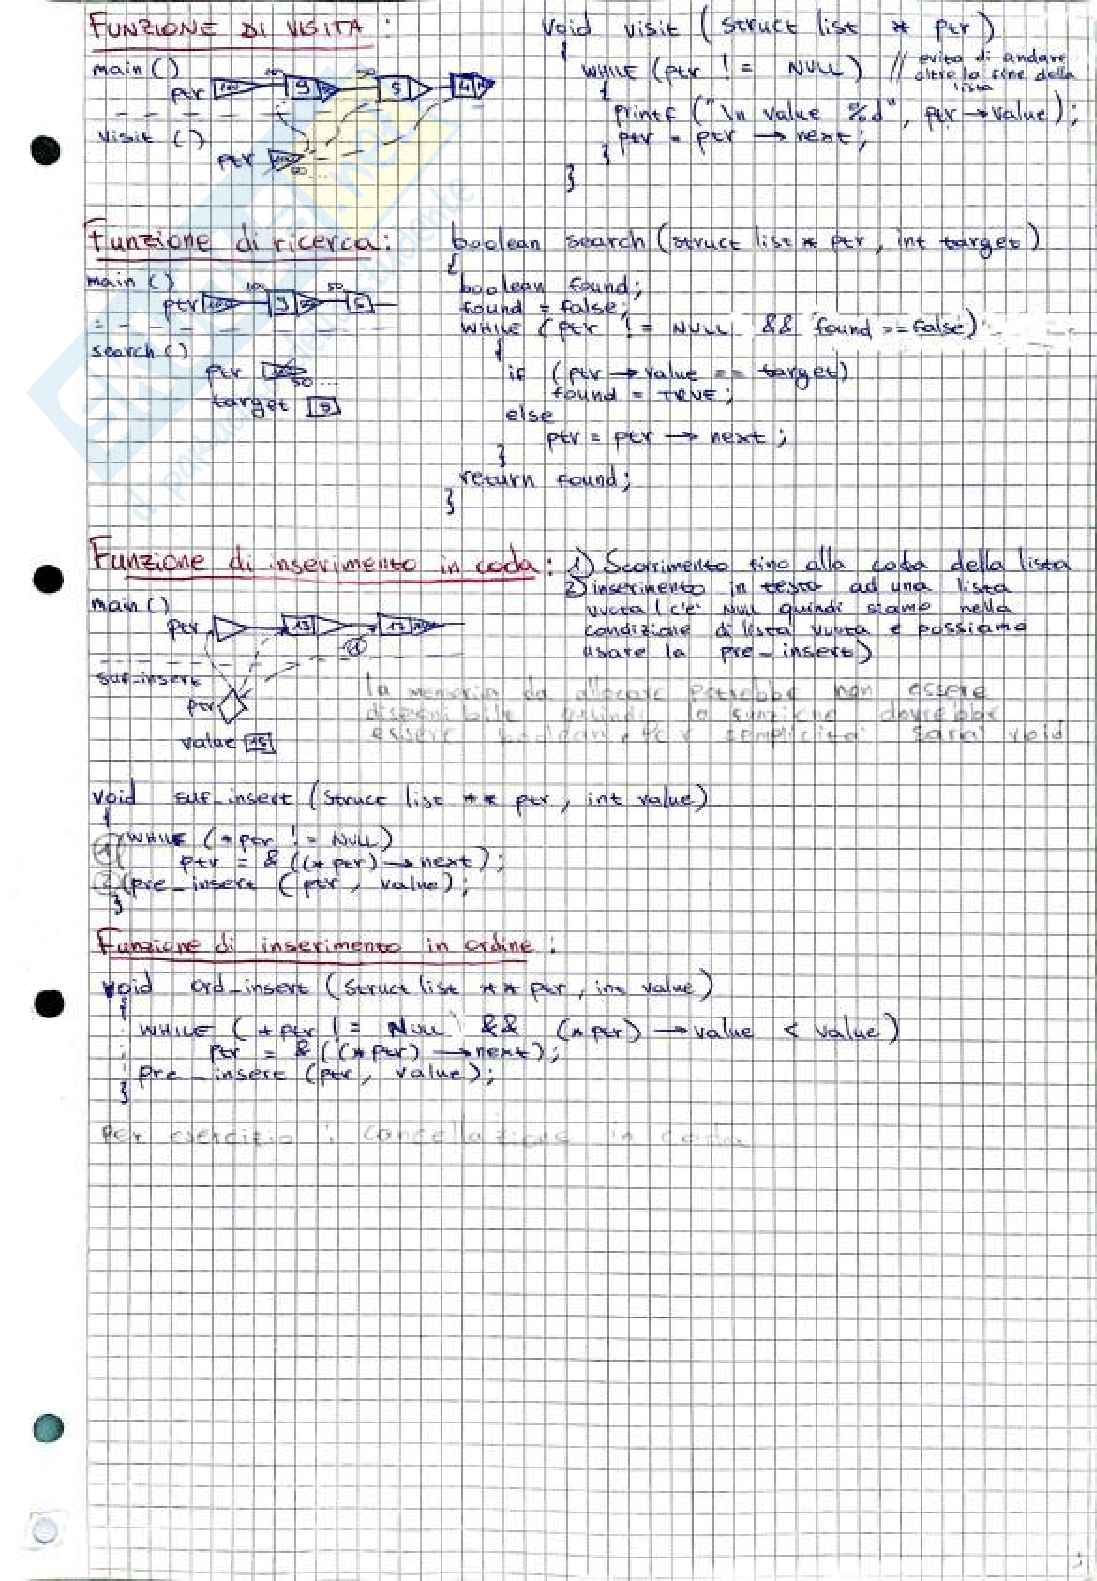 FUNZIONE DI VISITA :
void visit ( struct list * ptr )
{
main ()
WHILE (ptr != NULL) // evito di andare
oltre la fine della
lista
ptr 9 5 4
{
printf ("\n value %d", ptr → value);
visit ()
ptr = ptr → next;
ptr
}
}
Funzione di ricerca:
boolean search (struct list * ptr, int target)
{
main ()
boolean found;
ptr 9 5
found = false;
WHILE (ptr != NULL && found == false)
search ()
{
ptr
if (ptr → value == target)
target 5
found = TRUE;
else
ptr = ptr → next;
}
return found;
}
Funzione di inserimento in coda:
1) Scorrimento fino alla coda della lista
2) inserimento in testa ad una lista
vuota (c'è NULL quindi siamo nella
condizione di lista vuota e possiamo
usare la pre_insert)
main ()
ptr 13 17
suf_insert
ptr
value 15
la memoria da allocare potrebbe non essere
disponibile quindi la funzione dovrebbe
essere boolean, per semplicità sarà void
void suf_insert (struct list ** ptr, int value)
{
1 WHILE (*ptr != NULL)
ptr = & ((* ptr) → next);
2 pre_insert (ptr, value);
}
Funzione di inserimento in ordine:
void ord_insert (struct list ** ptr, int value)
{
WHILE (*ptr != NULL && (*ptr) → value < value)
ptr = & ((*ptr) → next);
pre_insert (ptr, value);
}
per esercizio : cancellazione in coda